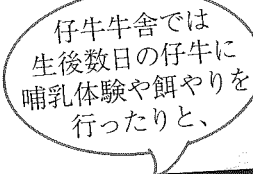 仔牛牛舎では
生後数日の仔牛に
哺乳体験や餌やりを
行ったりと、